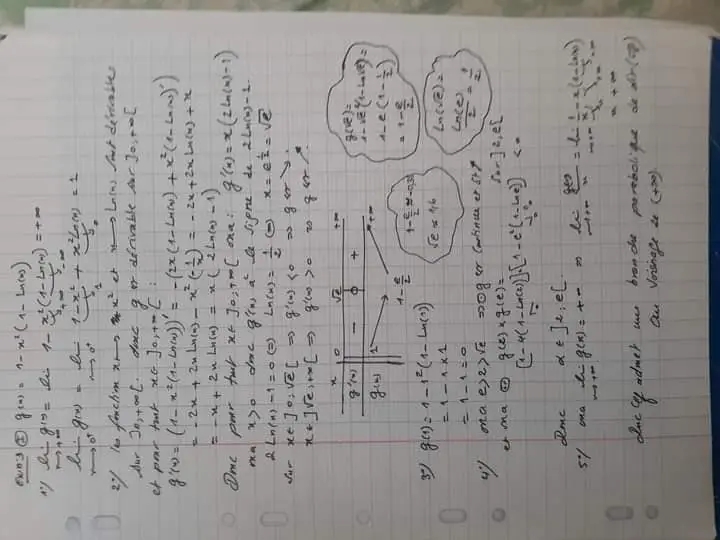 Exo n°3 ① g(x) = 1 - x²(1 - ln(x))
1°/ lim g(x) = lim 1 - x²(1 - ln(x)) = +∞
x→+∞
lim g(x) = lim 1 - x² + x² ln(x) = 1
x→0⁺ x→0⁺
2°/ la fonction x → x² et x → ln(x) sont dérivable
sur ]0,+∞[ donc g est dérivable sur ]0,+∞[
et pour tout x∈]0,+∞[ :
g'(x) = (1 - x²(1 - ln(x)))' = -(2x(1 - ln(x)) + x²(1 - ln(x))')
= -2x + 2x ln(x) - x²(-1/x) = -2x + 2x ln(x) + x
= -x + 2x ln(x) = x(2 ln(x) - 1)
Donc pour tout x∈]0,+∞[ on a : g'(x) = x(2 ln(x) - 1)
on a x > 0 donc g'(x) a le signe de 2 ln(x) - 1.
2 ln(x) - 1 = 0 ⇔ ln(x) = 1/2 ⇔ x = e^(1/2) = √e
sur x∈]0,√e[ ⇒ g'(x) < 0 ⇒ g est ↘.
x∈]√e,+∞[ ⇒ g'(x) > 0 ⇒ g est ↗
x 0 √e +∞
g'(x) - 0 +
g(x) 1 1 - e/2 +∞
g(√e) =
1 - √e²(1 - ln√e) =
1 - e(1 - 1/2)
= 1 - e/2
3°/ g(1) = 1 - 1²(1 - ln(1))
= 1 - 1 × 1
= 1 - 1 = 0
√e ≈ 1,6
ln(√e) =
ln(e)/2 = 1/2
4°/ on a e > 2 > √e ⇒ g est continue et st ↗
sur ]2,e[
et on a g(2) × g(e) =
[1 - 4(1 - ln(2))] × [1 - e²(1 - ln e)] < 0
Donc α∈]2,e[
5°/ on a lim g(x) = +∞ ⇒ lim g(x)/x = lim 1/x - x(1 - ln(x))
x→+∞ x→+∞ x→+∞
= +∞
donc Cg admet une branche parabolique de dir (oy)
au voisinage de (+∞)